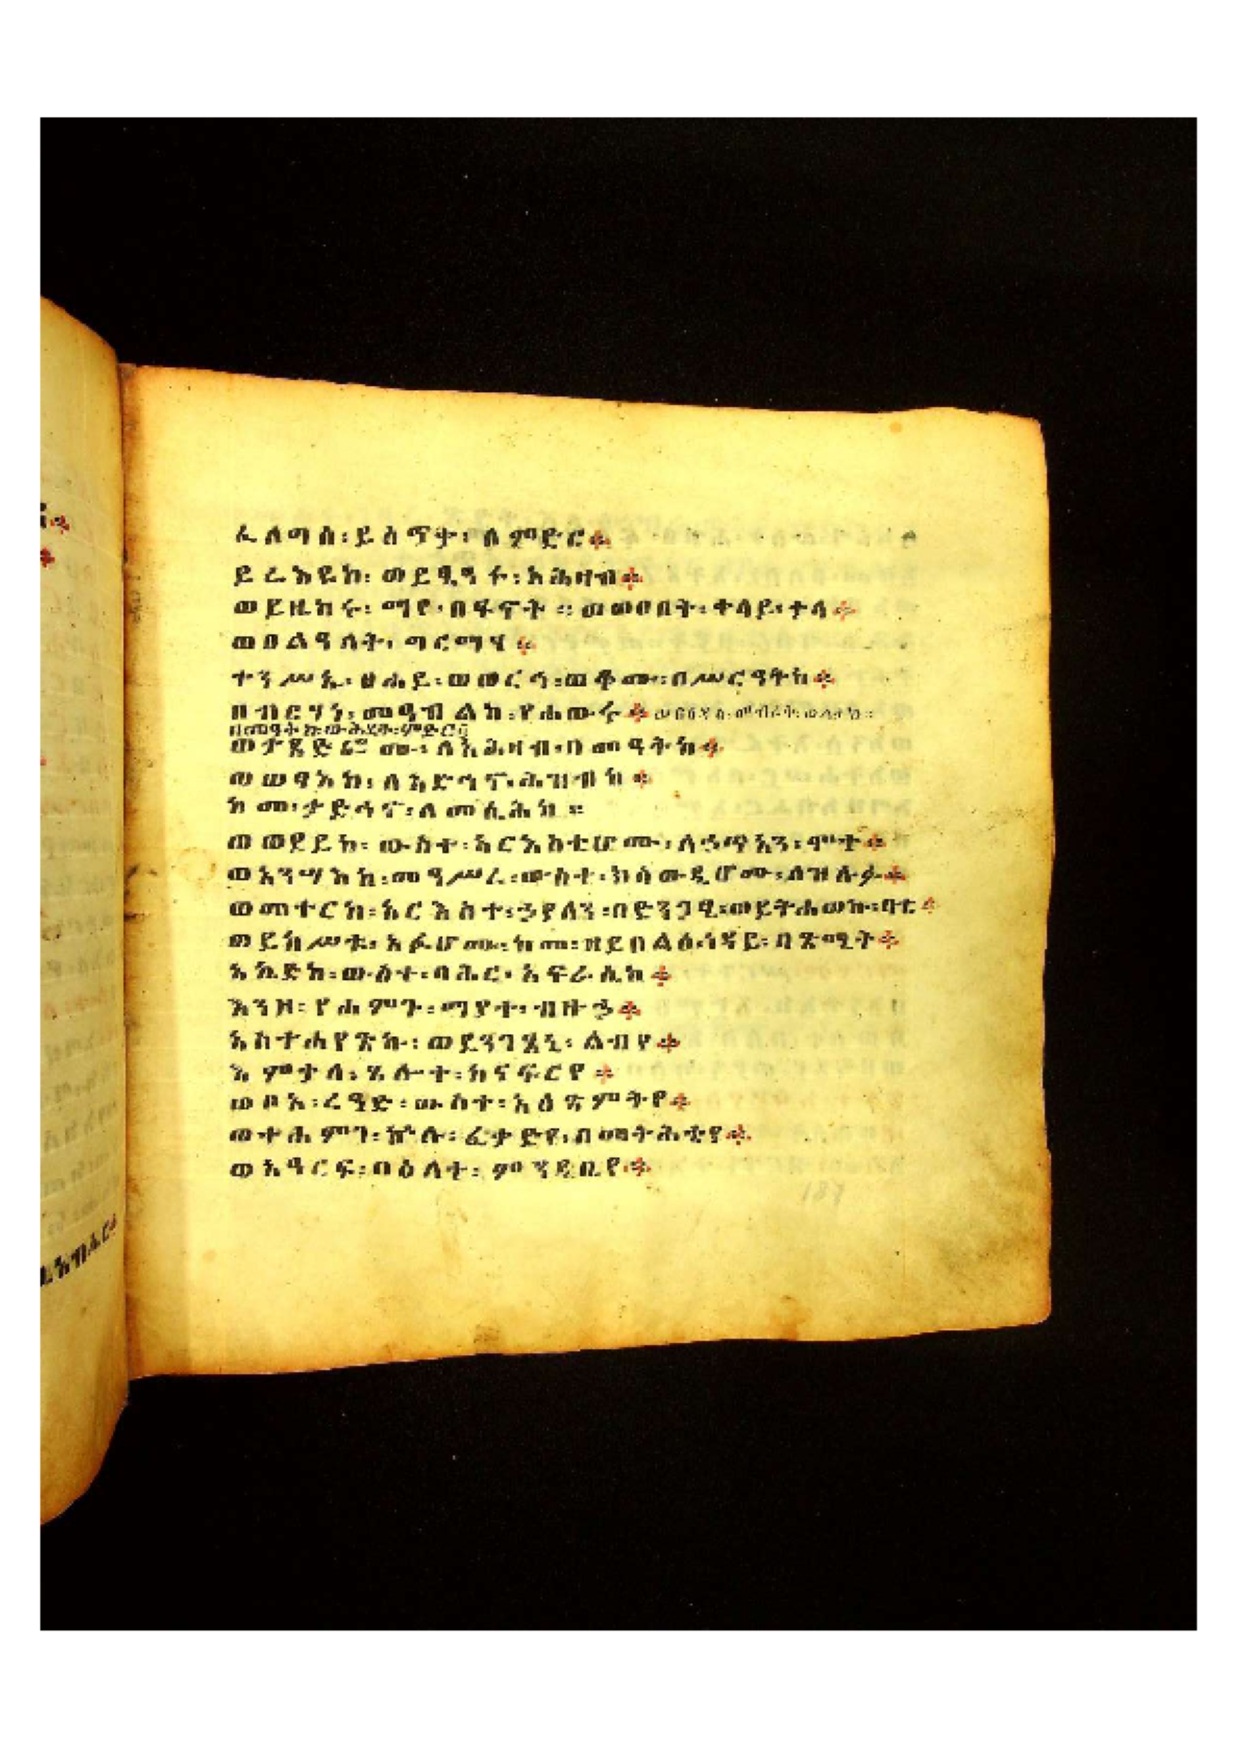 ፈለግሰ፡ ይሰጥት፡ ለምድር።
ይሬእዩከ፡ ወይዒዓፉ፡ አሕዛብ።
ወይዜከሩ፡ ማየ፡ በፍኖት ። ወወሀበት፡ ቀላይ፡ ቃላ።
ወዐልዓለት፡ ግርማሃ።
ተንሥኢ፡ ፀሐይ፡ ወወርኅ፡ ወቆሙ፡ በሥርዓትከ።
በብርሃነ፡ መዓብልከ፡ የሐውሩ።
በመዓትከ፡ ውሕደት፡ ምድር።
ወታጼድፎሙ፡ ለአሕዛብ፡ በመዓትከ።
ወወፃእከ፡ ለአድኅኖ፡ ሕዝብከ።
ከመ፡ ታድኅኖ፡ ለመሲሕከ ።
ወወደይከ፡ ውስተ፡ አርእስቲሆሙ፡ ለኃጥአን፡ ሞተ።
ወአንሣእከ፡ መዓሥረ፡ ውስተ፡ ክሳውዲሆሙ፡ ለዝሉፉ።
ወመተርከ፡ አርእስተ፡ ኃያላን፡ በድንጋፄ፡ ወይትሐወኩ፡ ባቲ።
ወይከሥቱ፡ አፉሆሙ፡ ከመ፡ ዘይበልዕ፡ ነዳይ፡ በጽሚት።
አኬድከ፡ ውስተ፡ ባሕር፡ አፍራሲከ።
እንዘ፡ የሐምጉ፡ ማያተ፡ ብዙኃ።
አስተሐየጽኩ፡ ወደንገፀኒ፡ ልብየ።
እምቃለ፡ ጸሎተ፡ ከናፍርየ።
ወቦአ፡ ረዓድ፡ ውስተ፡ አዕጽምትየ።
ወተሐምገ፡ ኵሉ፡ ፈታድየ፡ በመትሕቲየ።
ወአዓርፍ፡ በዕለተ፡ ምንዳቤየ።